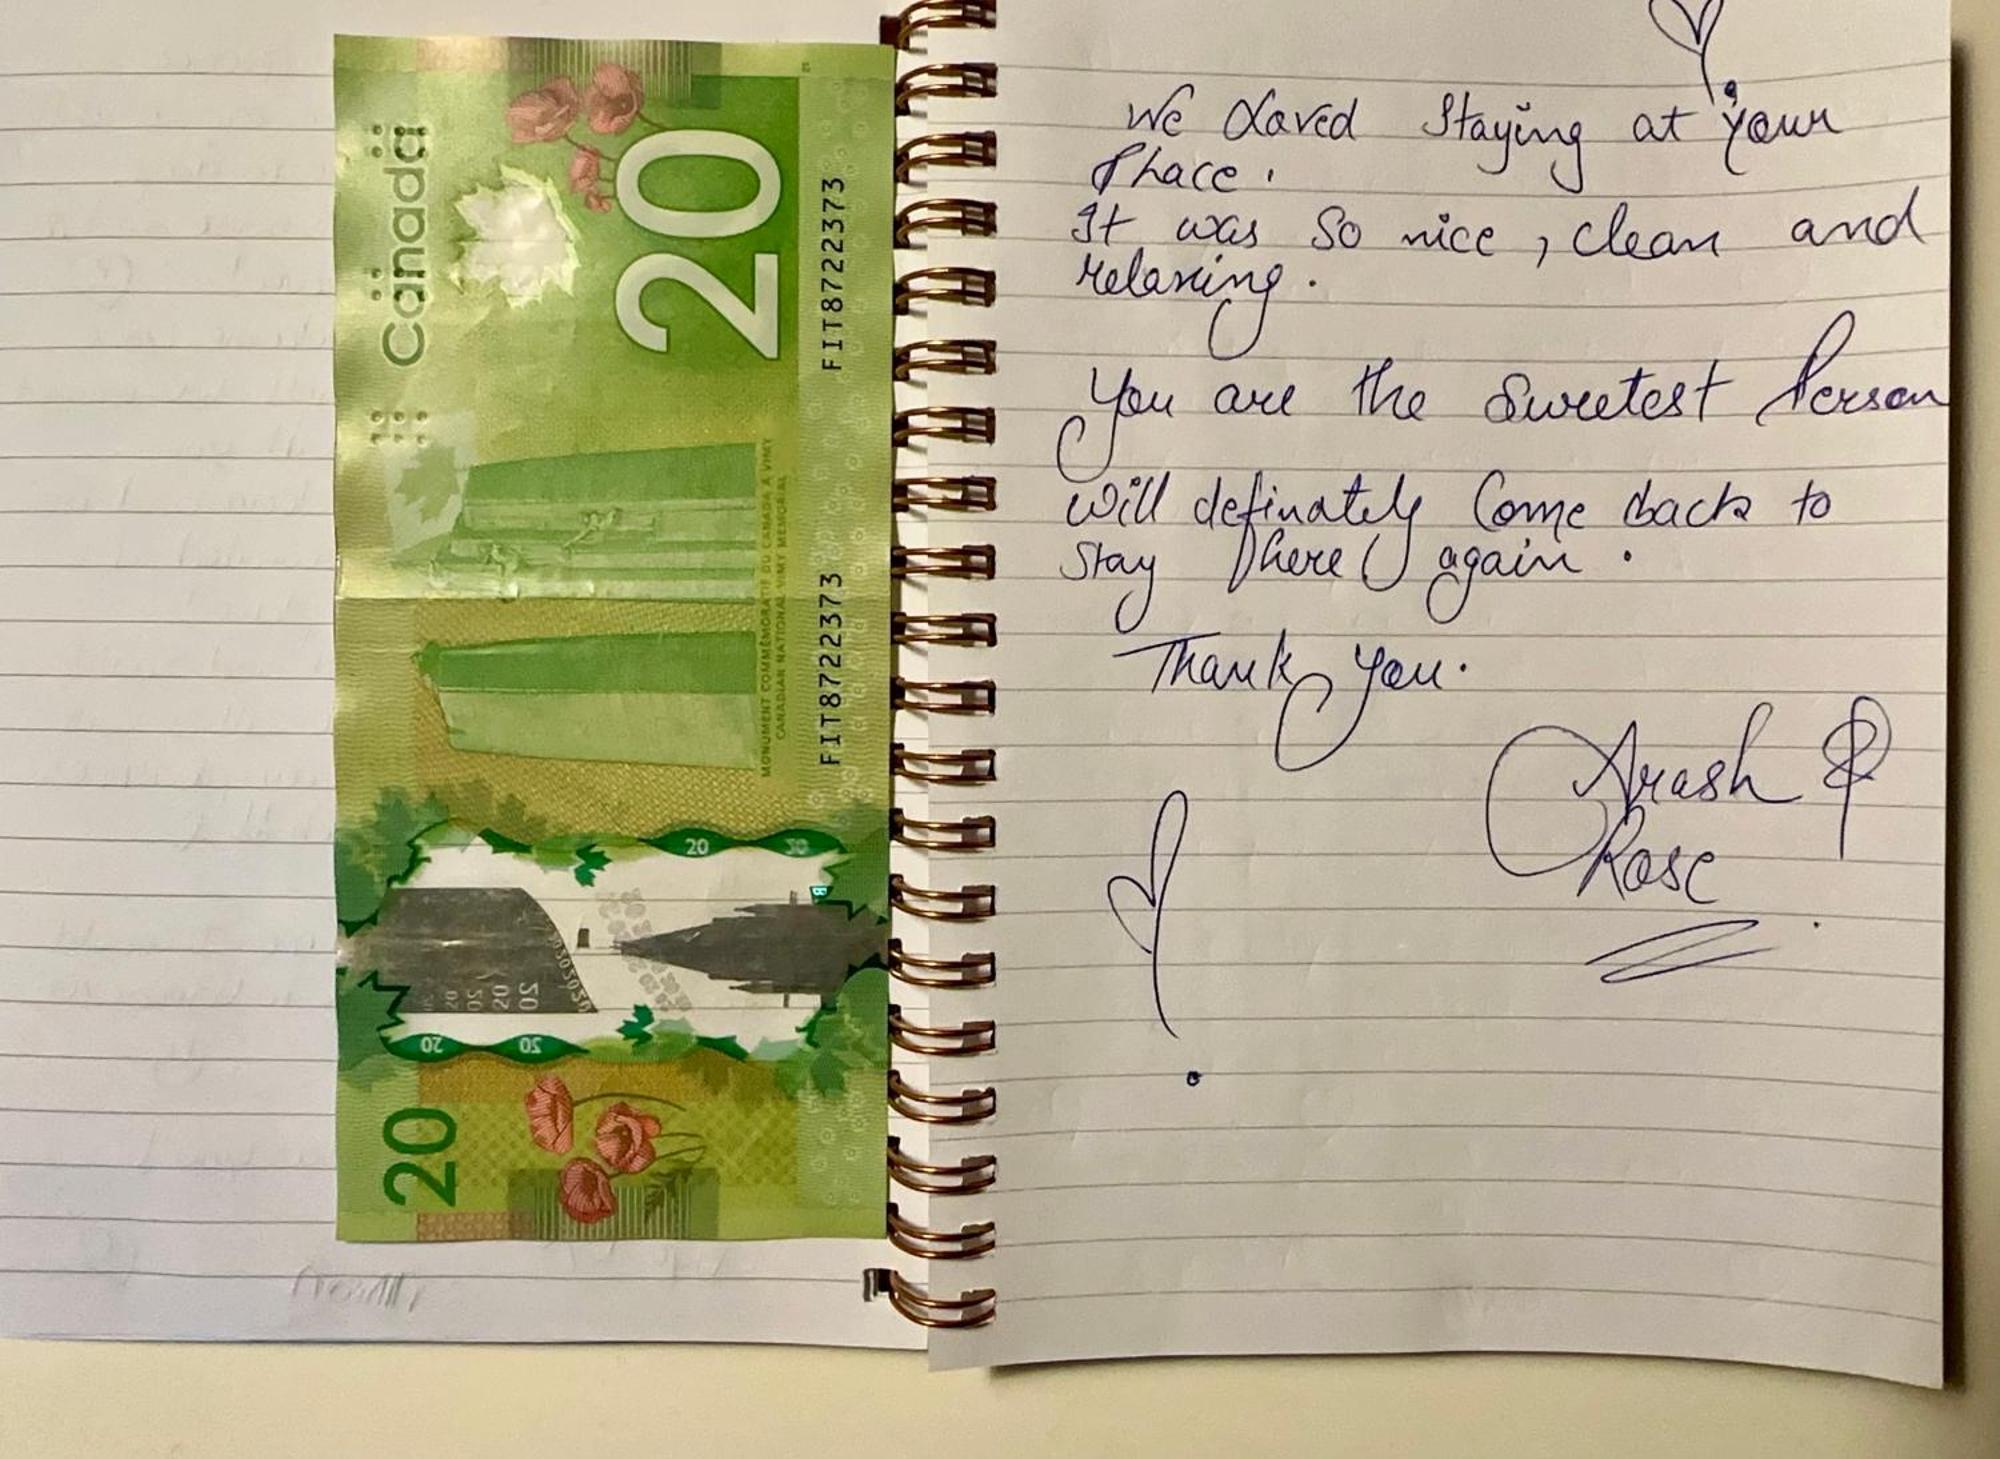 Canada
20
FIT8722373
FIT8722373
MONUMENT COMMÉMORATIF DU CANADA À VIMY
CANADIAN NATIONAL VIMY MEMORIAL
20
20
20
20
20
20
We Loved Staying at your
Place.
It was so nice, clean and
relaxing.
You are the sweetest Person
will definately Come back to
stay here again.
Thank you.
Arash &
Rose